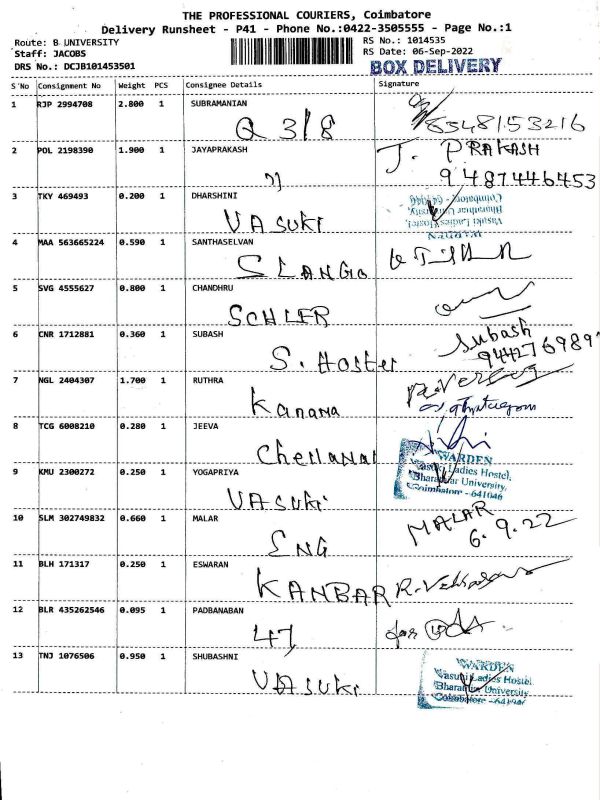 THE PROFESSIONAL COURIERS, Coimbatore
Delivery Runsheet - P41 - Phone No.:0422-3505555 - Page No.:1
Route: B UNIVERSITY
RS No.: 1014535
Staff: JACOBS
RS Date: 06-Sep-2022
DRS No.: DCJB101453501
BOX DELIVERY
S'No Consignment No Weight PCS Consignee Details Signature
1 RJP 2994708 2.800 1 SUBRAMANIAN
Q 3/8 8548153216
2 POL 2198390 1.900 1 JAYAPRAKASH
J. PRAKASH
9487446453
3 TKY 469493 0.200 1 DHARSHINI
VASUKI
WARDEN
Vasuki Ladies Hostel,
Bharathiar University,
Coimbatore - 641046
4 MAA 563665224 0.590 1 SANTHASELVAN
SLANGO
5 SVG 4555627 0.800 1 CHANDHRU
SCHLER
6 CNR 1712881 0.360 1 SUBASH
S. Hostel
Subash
944276989
7 NGL 2404307 1.700 1 RUTHRA
Kanana
8 TCG 6008210 0.280 1 JEEVA
Chellanal
9 KMU 2300272 0.250 1 YOGAPRIYA
VASUKI
WARDEN
Vasuki Ladies Hostel,
Bharathiar University,
Coimbatore - 641046
10 SLM 302749832 0.660 1 MALAR
ENG
MALAR
6.9.22
11 BLH 171317 0.250 1 ESWARAN
KANBAR
12 BLR 435262546 0.095 1 PADBANABAN
47
for
13 TNJ 1076506 0.950 1 SHUBASHNI
VASUKI
WARDEN
Vasuki Ladies Hostel
Bharathiar University
Coimbatore - 641046